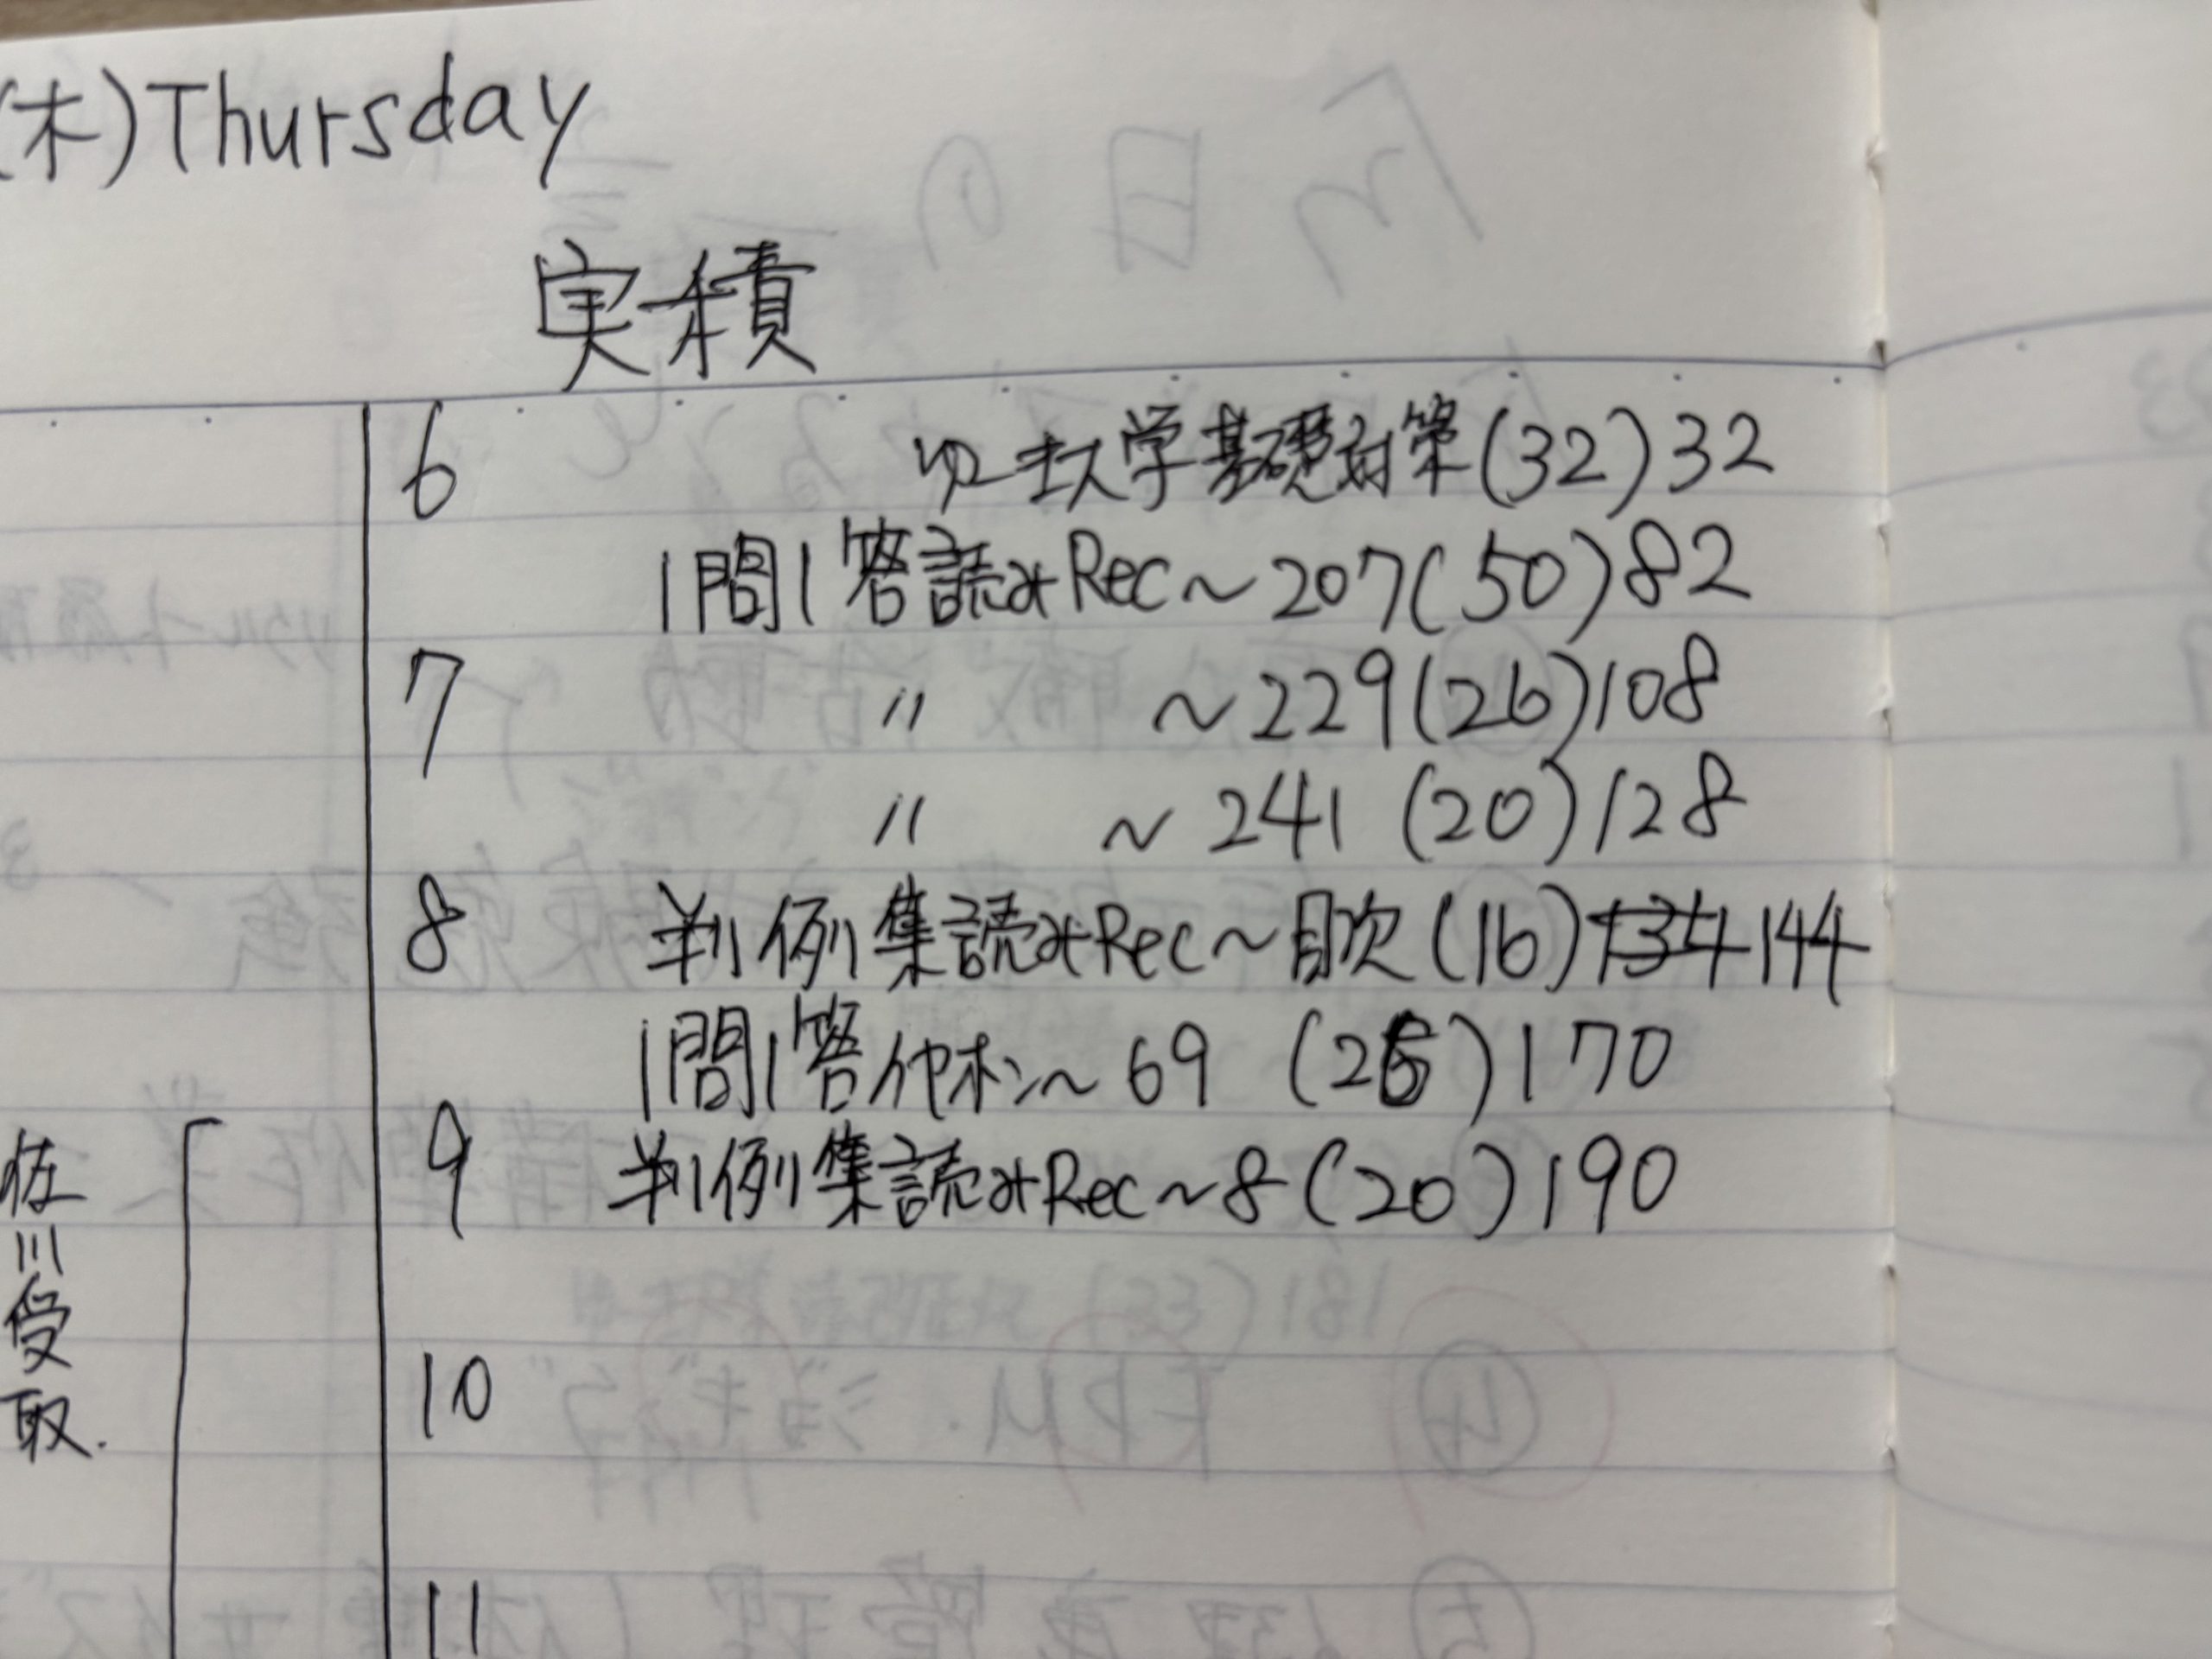 (木)Thursday
実積
6 基礎対策(32)32
1問1答読みRec～207(50)82
7 〃 ～229(26)108
〃 ～241 (20)128
8 判例集読みRec～目次(16)134 144
1問1答イヤホン～69 (26)170
9 判例集読みRec～8(20)190
10
11
佐川受取.